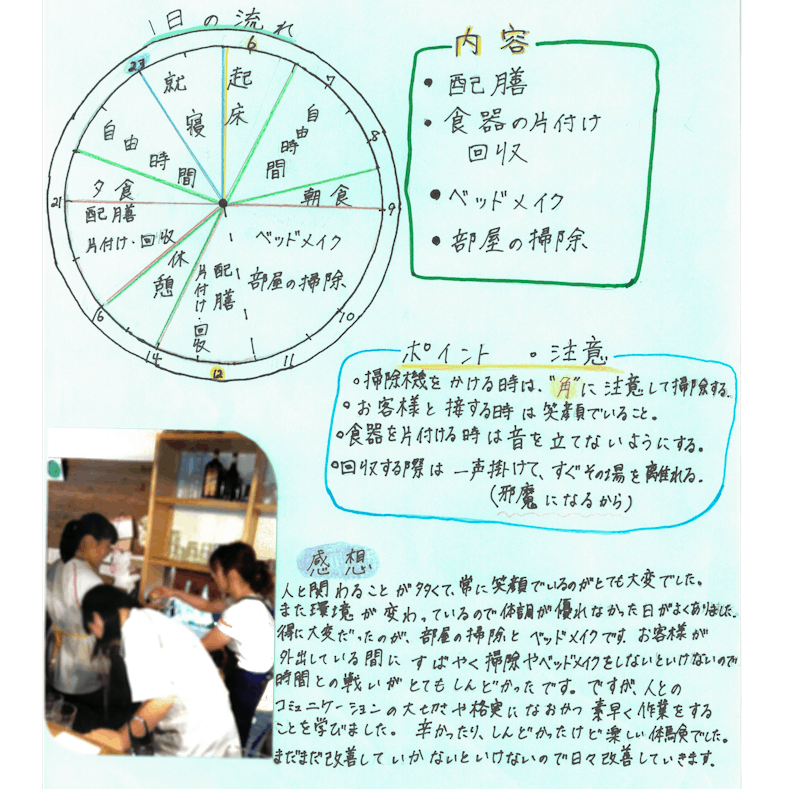 1日の流れ
6
起床
7
自由時間
8
朝食
9
ベッドメイク
部屋の掃除
10
11
12
配膳
片付け・回収
14
休憩
16
夕食
配膳
片付け・回収
21
自由時間
23
就寝
内容
• 配膳
• 食器の片付け
回収
• ベッドメイク
• 部屋の掃除
ポイント ・注意
・掃除機をかける時は、"角"に注意して掃除する。
・お客様と接する時は笑顔でいること。
・食器を片付ける時は音を立てないようにする。
・回収する際は一声掛けて、すぐその場を離れる。
(邪魔になるから)
感想
人と関わることが多くて、常に笑顔でいるのがとても大変でした。
また環境が変わっているので体調が優れなかった日がよくありました。
得に大変だったのが、部屋の掃除とベッドメイクです。お客様が
外出している間にすばやく掃除やベッドメイクをしないといけないので
時間との戦いがとてもしんどかったです。ですが、人との
コミュニケーションの大切さや格実になおかつ素早く作業をする
ことを学びました。辛かったり、しんどかったけど楽しい体験でした。
まだまだ改善していかないといけないので日々改善していきます。